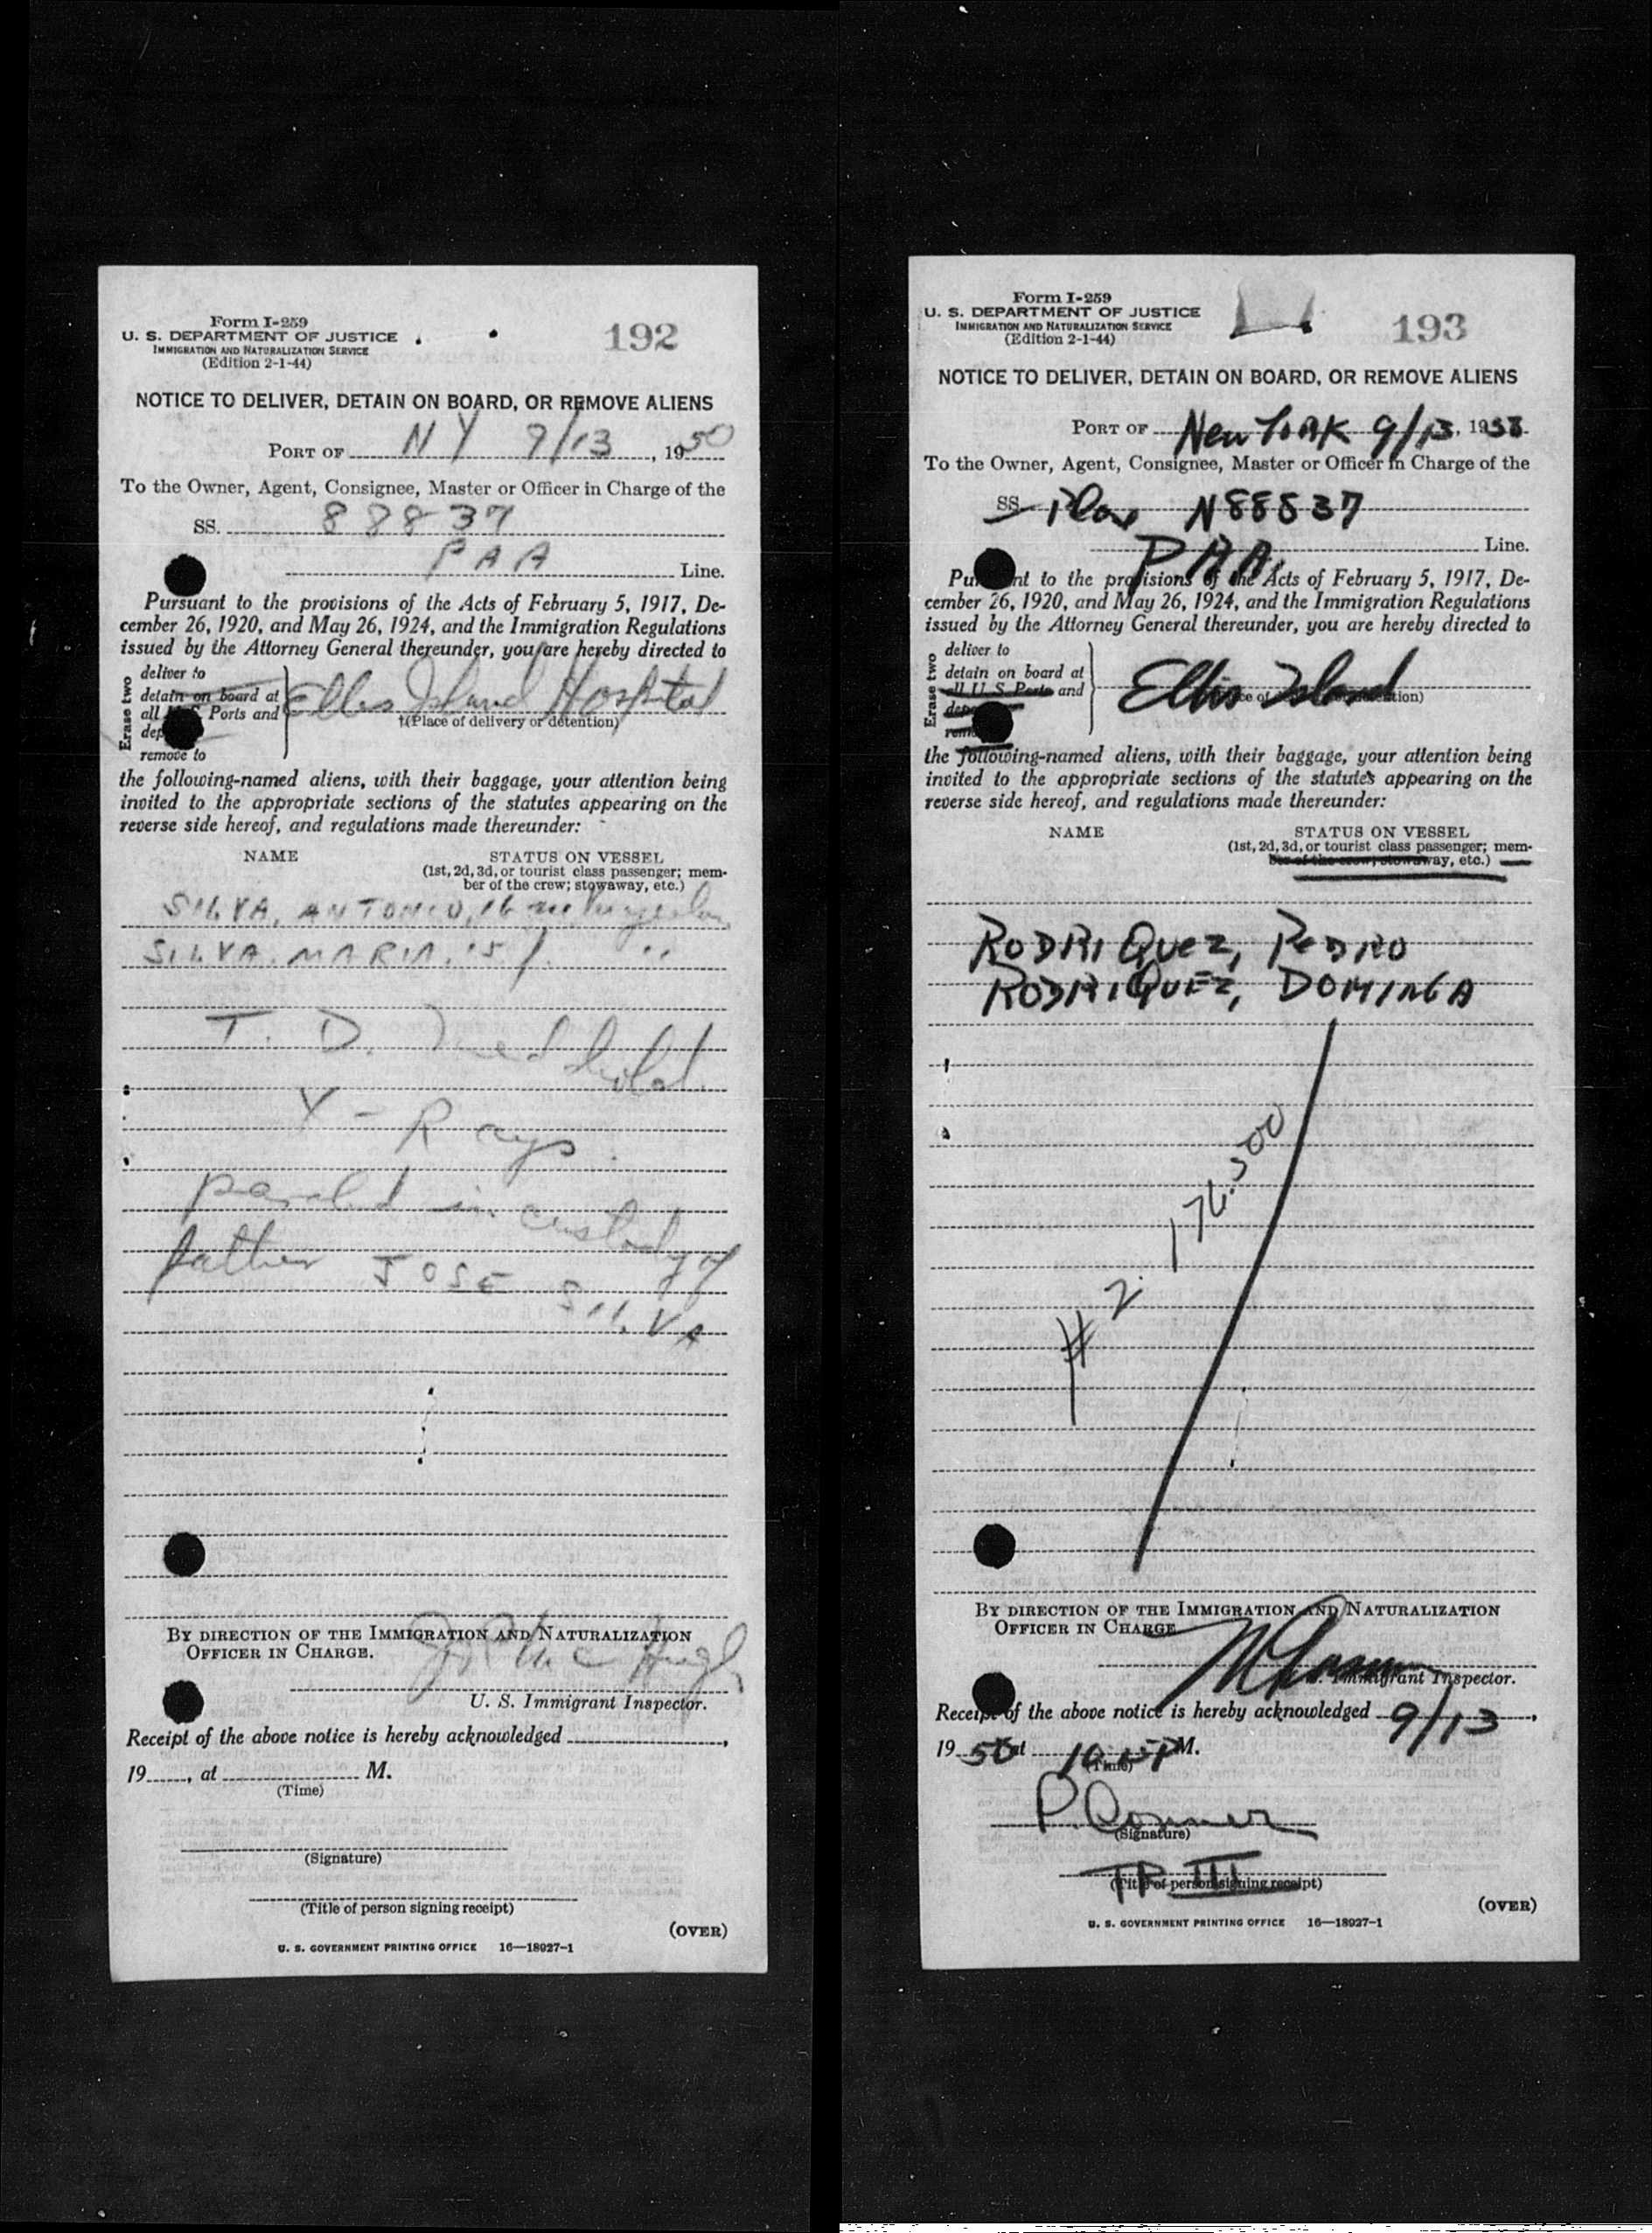 Form I-259
U. S. DEPARTMENT OF JUSTICE
IMMIGRATION AND NATURALIZATION SERVICE
(Edition 2-1-44)
192
NOTICE TO DELIVER, DETAIN ON BOARD, OR REMOVE ALIENS
PORT OF N Y 9/13, 1950
To the Owner, Agent, Consignee, Master or Officer in Charge of the
SS. 88837
PAA Line.
Pursuant to the provisions of the Acts of February 5, 1917, De-
cember 26, 1920, and May 26, 1924, and the Immigration Regulations
issued by the Attorney General thereunder, you are hereby directed to
Erase two
deliver to
detain on board at
all Ports and
remove to
Ellis Island Hospital
†(Place of delivery or detention)
the following-named aliens, with their baggage, your attention being
invited to the appropriate sections of the statutes appearing on the
reverse side hereof, and regulations made thereunder:
NAME STATUS ON VESSEL
(1st, 2d, 3d, or tourist class passenger; mem-
ber of the crew; stowaway, etc.)
SILVA, ANTONIO, 16
SILVA, MARIA, 15 f. "
T. D. Med hold
X-Rays
paroled in custody of
father JOSE SILVA
BY DIRECTION OF THE IMMIGRATION AND NATURALIZATION
OFFICER IN CHARGE.
Mc Hugh
U. S. Immigrant Inspector.
Receipt of the above notice is hereby acknowledged
19, at M.
(Time)
(Signature)
(Title of person signing receipt)
(OVER)
U. S. GOVERNMENT PRINTING OFFICE 16—18927-1
Form I-259
U. S. DEPARTMENT OF JUSTICE
IMMIGRATION AND NATURALIZATION SERVICE
(Edition 2-1-44)
193
NOTICE TO DELIVER, DETAIN ON BOARD, OR REMOVE ALIENS
PORT OF New York 9/13, 19
To the Owner, Agent, Consignee, Master or Officer in Charge of the
SS Plane N88837
PAA. Line.
Pursuant to the provisions of the Acts of February 5, 1917, De-
cember 26, 1920, and May 26, 1924, and the Immigration Regulations
issued by the Attorney General thereunder, you are hereby directed to
Erase two
deliver to
detain on board at
all U. S. Ports and
Ellis Island
the following-named aliens, with their baggage, your attention being
invited to the appropriate sections of the statutes appearing on the
reverse side hereof, and regulations made thereunder:
NAME STATUS ON VESSEL
(1st, 2d, 3d, or tourist class passenger; mem-
ber of the crew; stowaway, etc.)
RODRIQUEZ, PEDRO
RODRIQUEZ, DOMINGA
# 2. 176.500
BY DIRECTION OF THE IMMIGRATION AND NATURALIZATION
OFFICER IN CHARGE
Immigrant Inspector.
Receipt of the above notice is hereby acknowledged 9/13,
19 50 at 10 P M.
(Time)
P. Conner
(Signature)
TP III
(Title of person signing receipt)
(OVER)
U. S. GOVERNMENT PRINTING OFFICE 16—18927-1